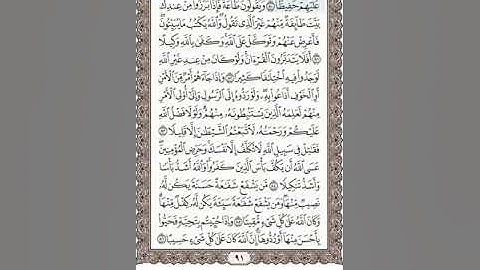 عَلَيْهِمْ حَفِيظًا ۝٨٠ وَيَقُولُونَ طَاعَةٌ فَإِذَا بَرَزُوا۟ مِنْ عِندِكَ
بَيَّتَ طَآئِفَةٌ مِّنْهُمْ غَيْرَ ٱلَّذِى تَقُولُ وَٱللَّهُ يَكْتُبُ مَا يُبَيِّتُونَ
فَأَعْرِضْ عَنْهُمْ وَتَوَكَّلْ عَلَى ٱللَّهِ وَكَفَىٰ بِٱللَّهِ وَكِيلًا
۝٨١ أَفَلَا يَتَدَبَّرُونَ ٱلْقُرْءَانَ وَلَوْ كَانَ مِنْ عِندِ غَيْرِ ٱللَّهِ
لَوَجَدُوا۟ فِيهِ ٱخْتِلَٰفًا كَثِيرًا ۝٨٢ وَإِذَا جَآءَهُمْ أَمْرٌ مِّنَ ٱلْأَمْنِ
أَوِ ٱلْخَوْفِ أَذَاعُوا۟ بِهِۦ وَلَوْ رَدُّوهُ إِلَى ٱلرَّسُولِ وَإِلَىٰٓ أُو۟لِى ٱلْأَمْرِ
مِنْهُمْ لَعَلِمَهُ ٱلَّذِينَ يَسْتَنۢبِطُونَهُۥ مِنْهُمْ وَلَوْلَا فَضْلُ ٱللَّهِ
عَلَيْكُمْ وَرَحْمَتُهُۥ لَٱتَّبَعْتُمُ ٱلشَّيْطَٰنَ إِلَّا قَلِيلًا ۝٨٣
فَقَٰتِلْ فِى سَبِيلِ ٱللَّهِ لَا تُكَلَّفُ إِلَّا نَفْسَكَ وَحَرِّضِ ٱلْمُؤْمِنِينَ
عَسَى ٱللَّهُ أَن يَكُفَّ بَأْسَ ٱلَّذِينَ كَفَرُوا۟ وَٱللَّهُ أَشَدُّ بَأْسًا
وَأَشَدُّ تَنكِيلًا ۝٨٤ مَّن يَشْفَعْ شَفَٰعَةً حَسَنَةً يَكُن لَّهُۥ
نَصِيبٌ مِّنْهَا وَمَن يَشْفَعْ شَفَٰعَةً سَيِّئَةً يَكُن لَّهُۥ كِفْلٌ مِّنْهَا
وَكَانَ ٱللَّهُ عَلَىٰ كُلِّ شَىْءٍ مُّقِيتًا ۝٨٥ وَإِذَا حُيِّيتُم بِتَحِيَّةٍ فَحَيُّوا۟
بِأَحْسَنَ مِنْهَآ أَوْ رُدُّوهَآ إِنَّ ٱللَّهَ كَانَ عَلَىٰ كُلِّ شَىْءٍ حَسِيبًا ۝٨٦
٩١